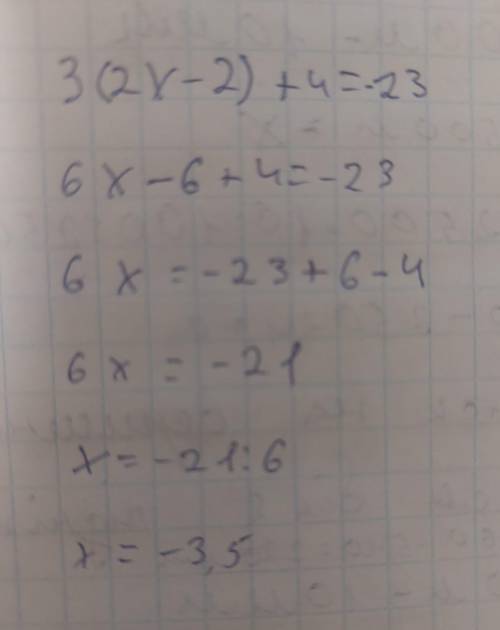 3(2x-2)+4=-23
6x-6+4=-23
6x=-23+6-4
6x=-21
x=-21:6
x=-3,5